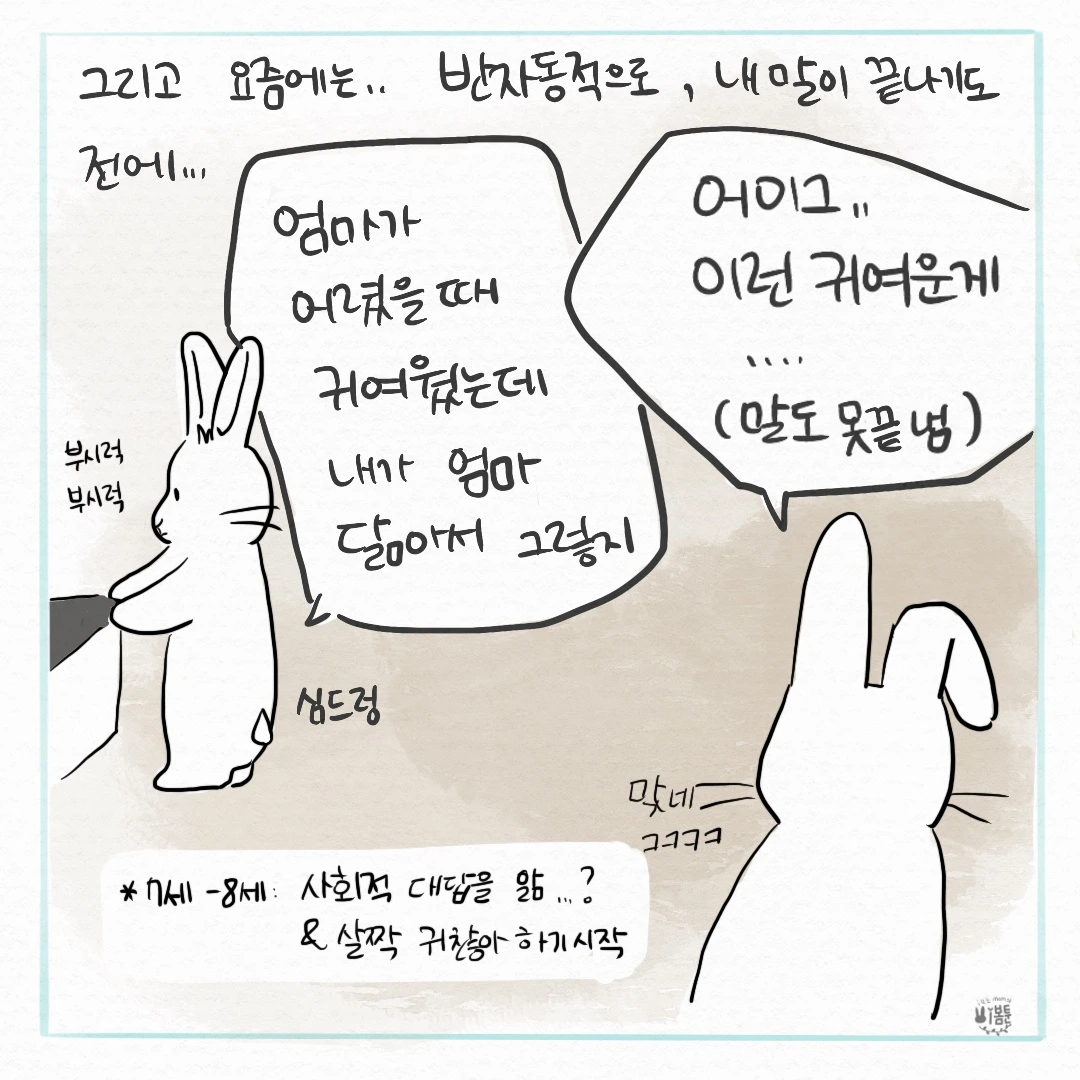 그리고 요즘에는.. 반자동적으로, 내 말이 끝나기도
전에...
어이그..
이런 귀여운게
....
(말도 못끝냄)
엄마가
어렸을 때
귀여웠는데
내가 엄마
닮아서 그렇지
부시럭
부시럭
심드렁
맞네
ㅋㅋㅋㅋ
*7세-8세: 사회적 대답을 앎...?
& 살짝 귀찮아 하기 시작